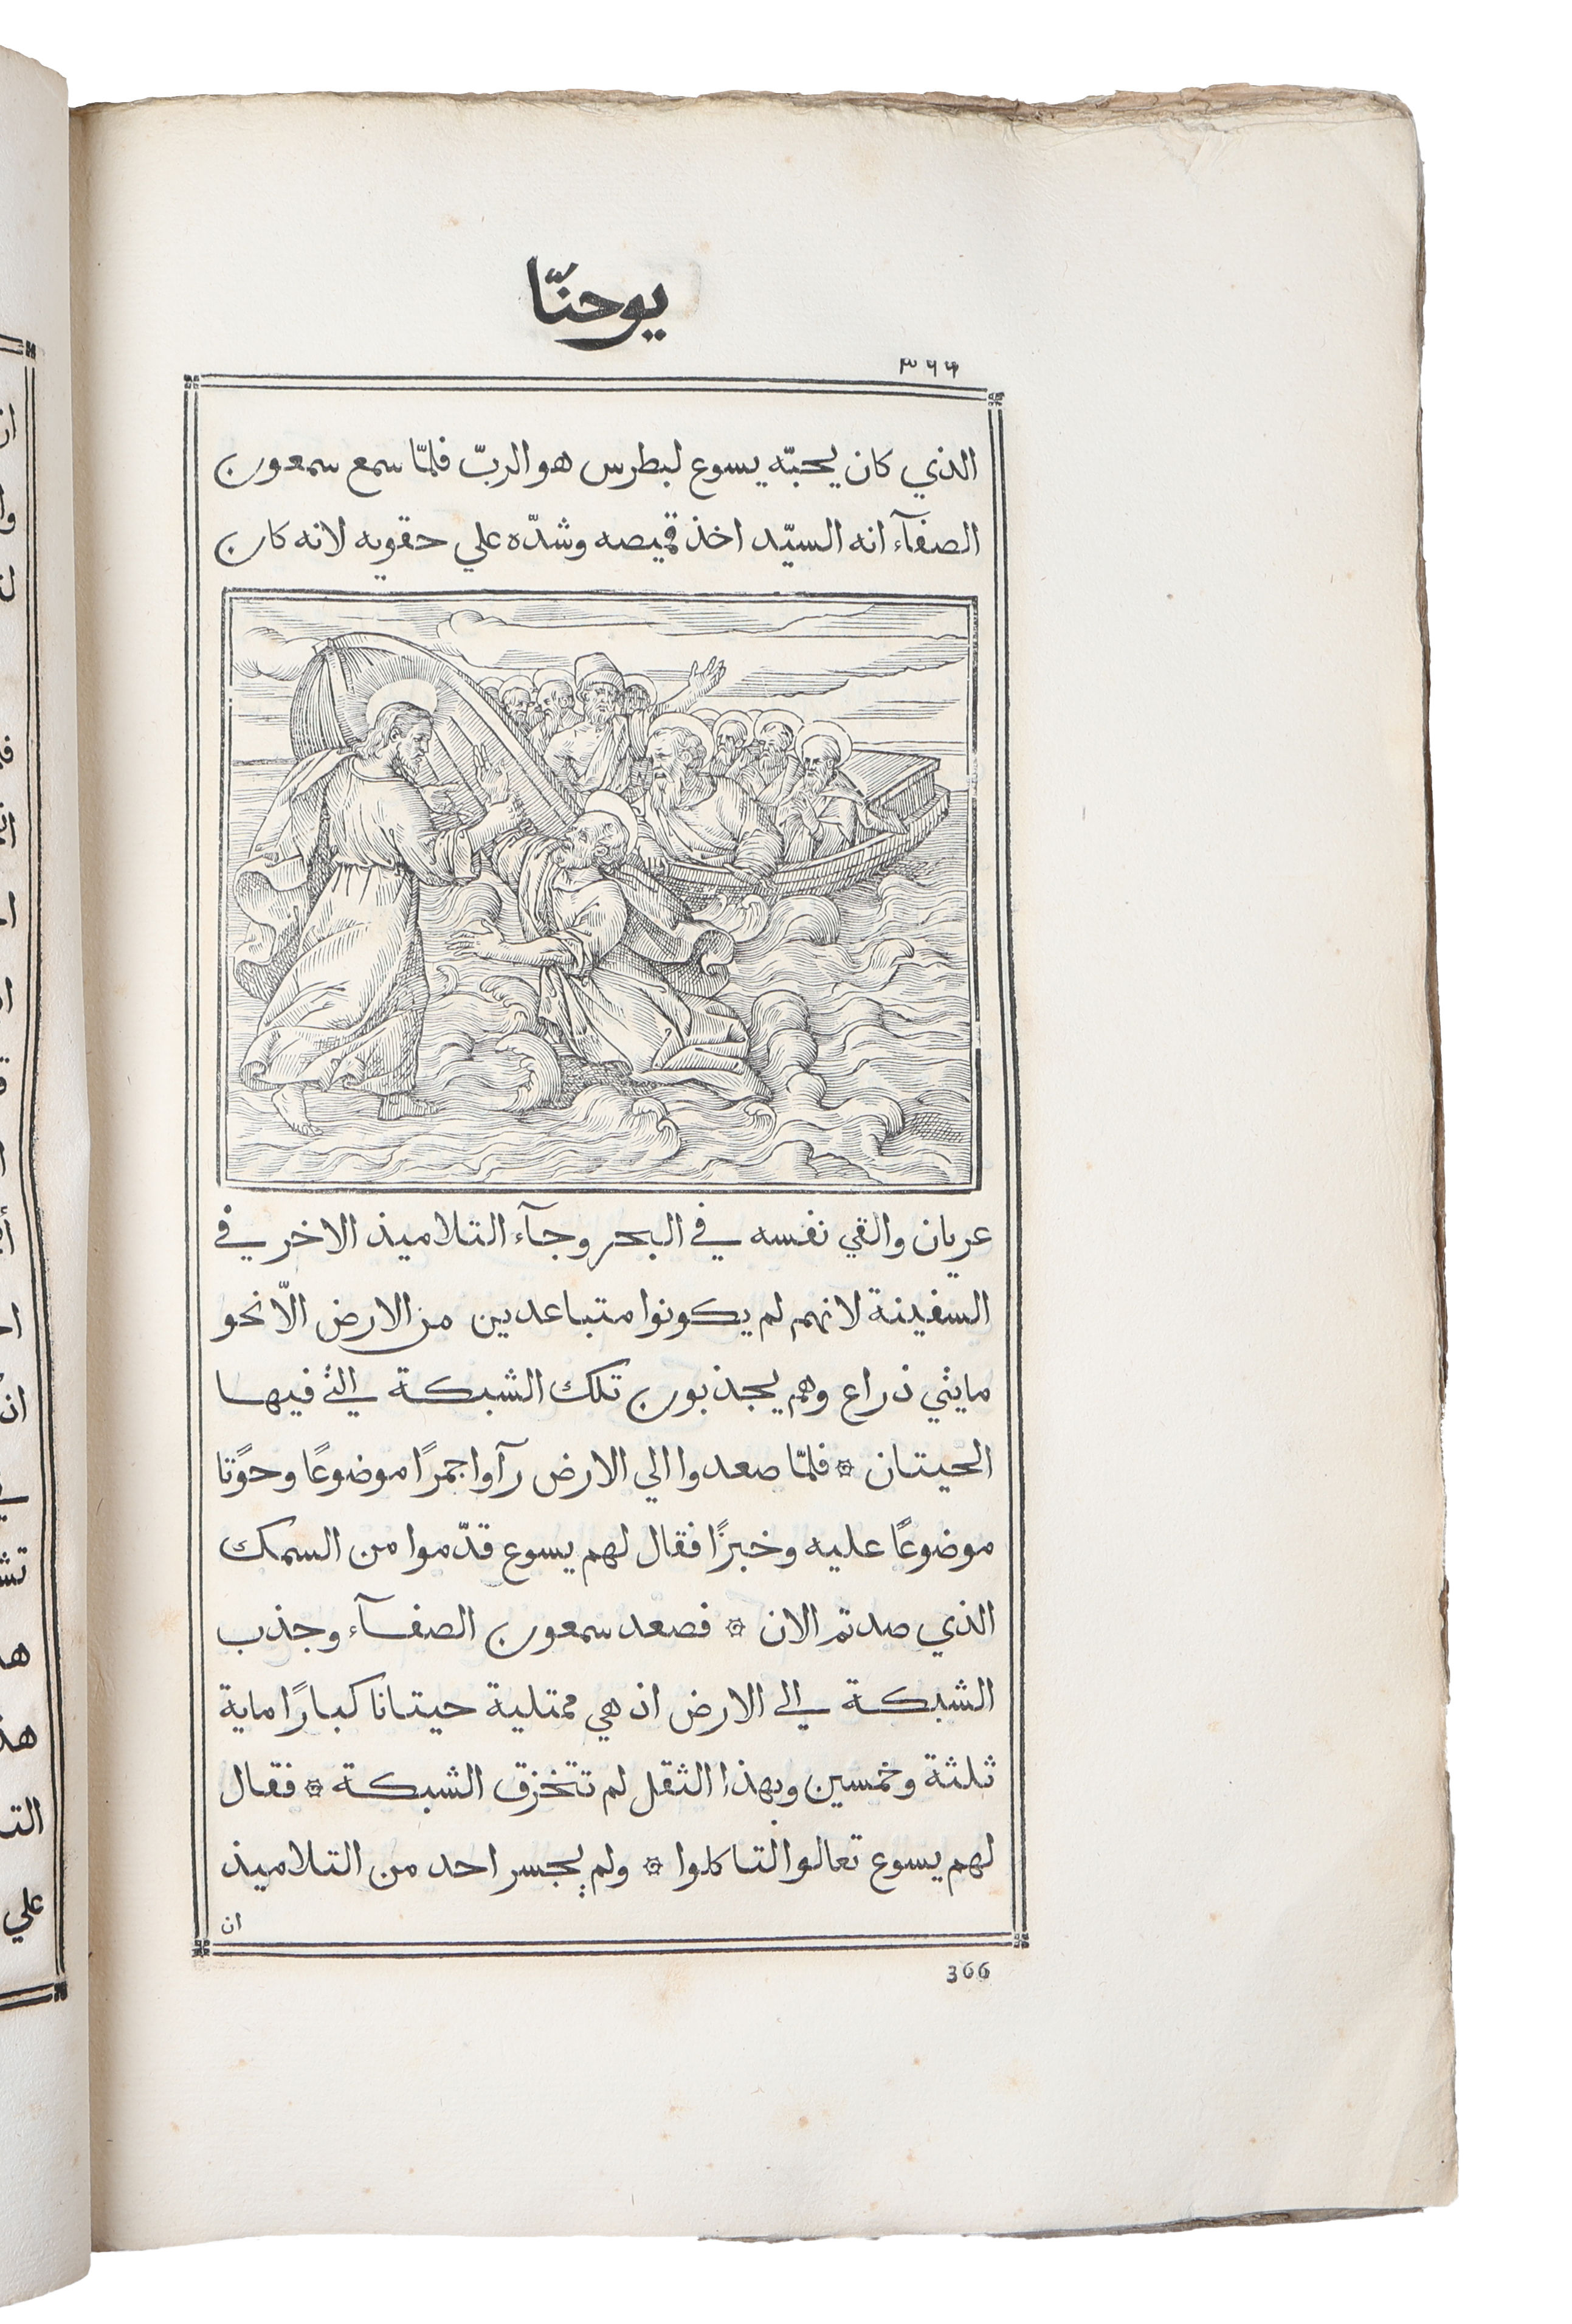 يوحنّا
٣٦٦
الذي كان يحبّه يسوع لبطرس هو الربّ فلمّا سمع سمعون
الصفآء انه السيّد اخذ قميصه وشدّه علي حقويه لانه كان
عريان والقي نفسه في البحر وجآء التلاميذ الاخر في
السفينة لانهم لم يكونوا متباعدين من الارض الّا نحو
مايتي ذراع وهم يجذبون تلك الشبكة التي فيها
الحيتان ۞ فلمّا صعدوا الي الارض رآوا جمرًا موضوعًا وحوًتا
موضوعًا عليه وخبزًا فقال لهم يسوع قدّموا من السمك
الذي صدتم الان ۞ فصعد سمعون الصفآء وجذب
الشبكة الي الارض اذ هي ممتلية حيتانا كبارًا ماية
ثلثة وخمسين وبهذا الثقل لم تتخزق الشبكة ۞ فقال
لهم يسوع تعالوا لتاكلوا ۞ ولم يجسر احد من التلاميذ
ان
366